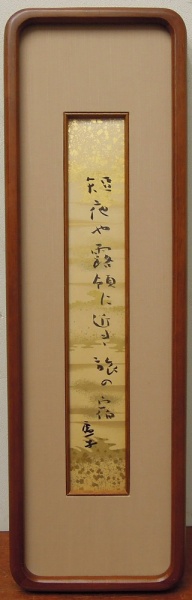 短夜や露領に近き旅の宿